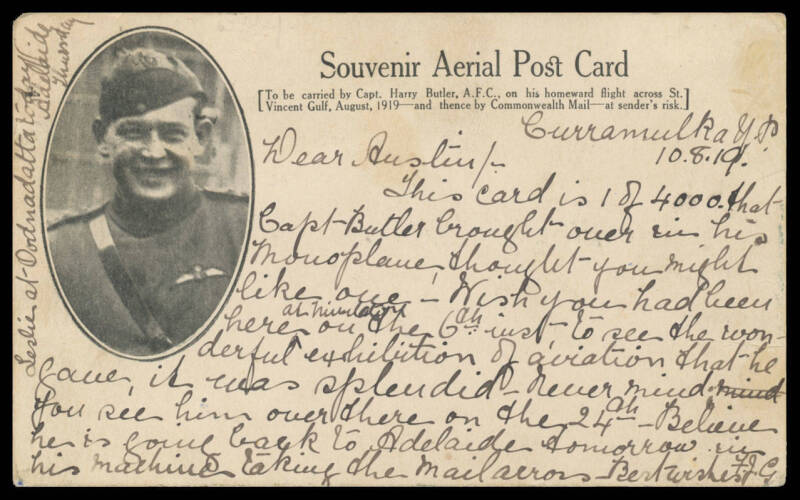 Souvenir Aerial Post Card
[To be carried by Capt. Harry Butler, A.F.C., on his homeward flight across St.
Vincent Gulf, August, 1919—and thence by Commonwealth Mail—at sender's risk.]
Curramulka Y.P.
10.8.19.
Dear Austin/-
This card is 1 of 4000. that
Capt Butler brought over in his
Monoplane, thought you might
like one - Wish you had been
at Minlaton
here on the 6th inst, to see the won-
derful exhibition of aviation that he
gave, it was splendid - never mind mind
you see him over there on the 24th - Believe
he is going back to Adelaide tomorrow in
his machine taking the mail across - Best wishes F.J.G
Leslie at Oodnadatta
Adelaide
Thursday